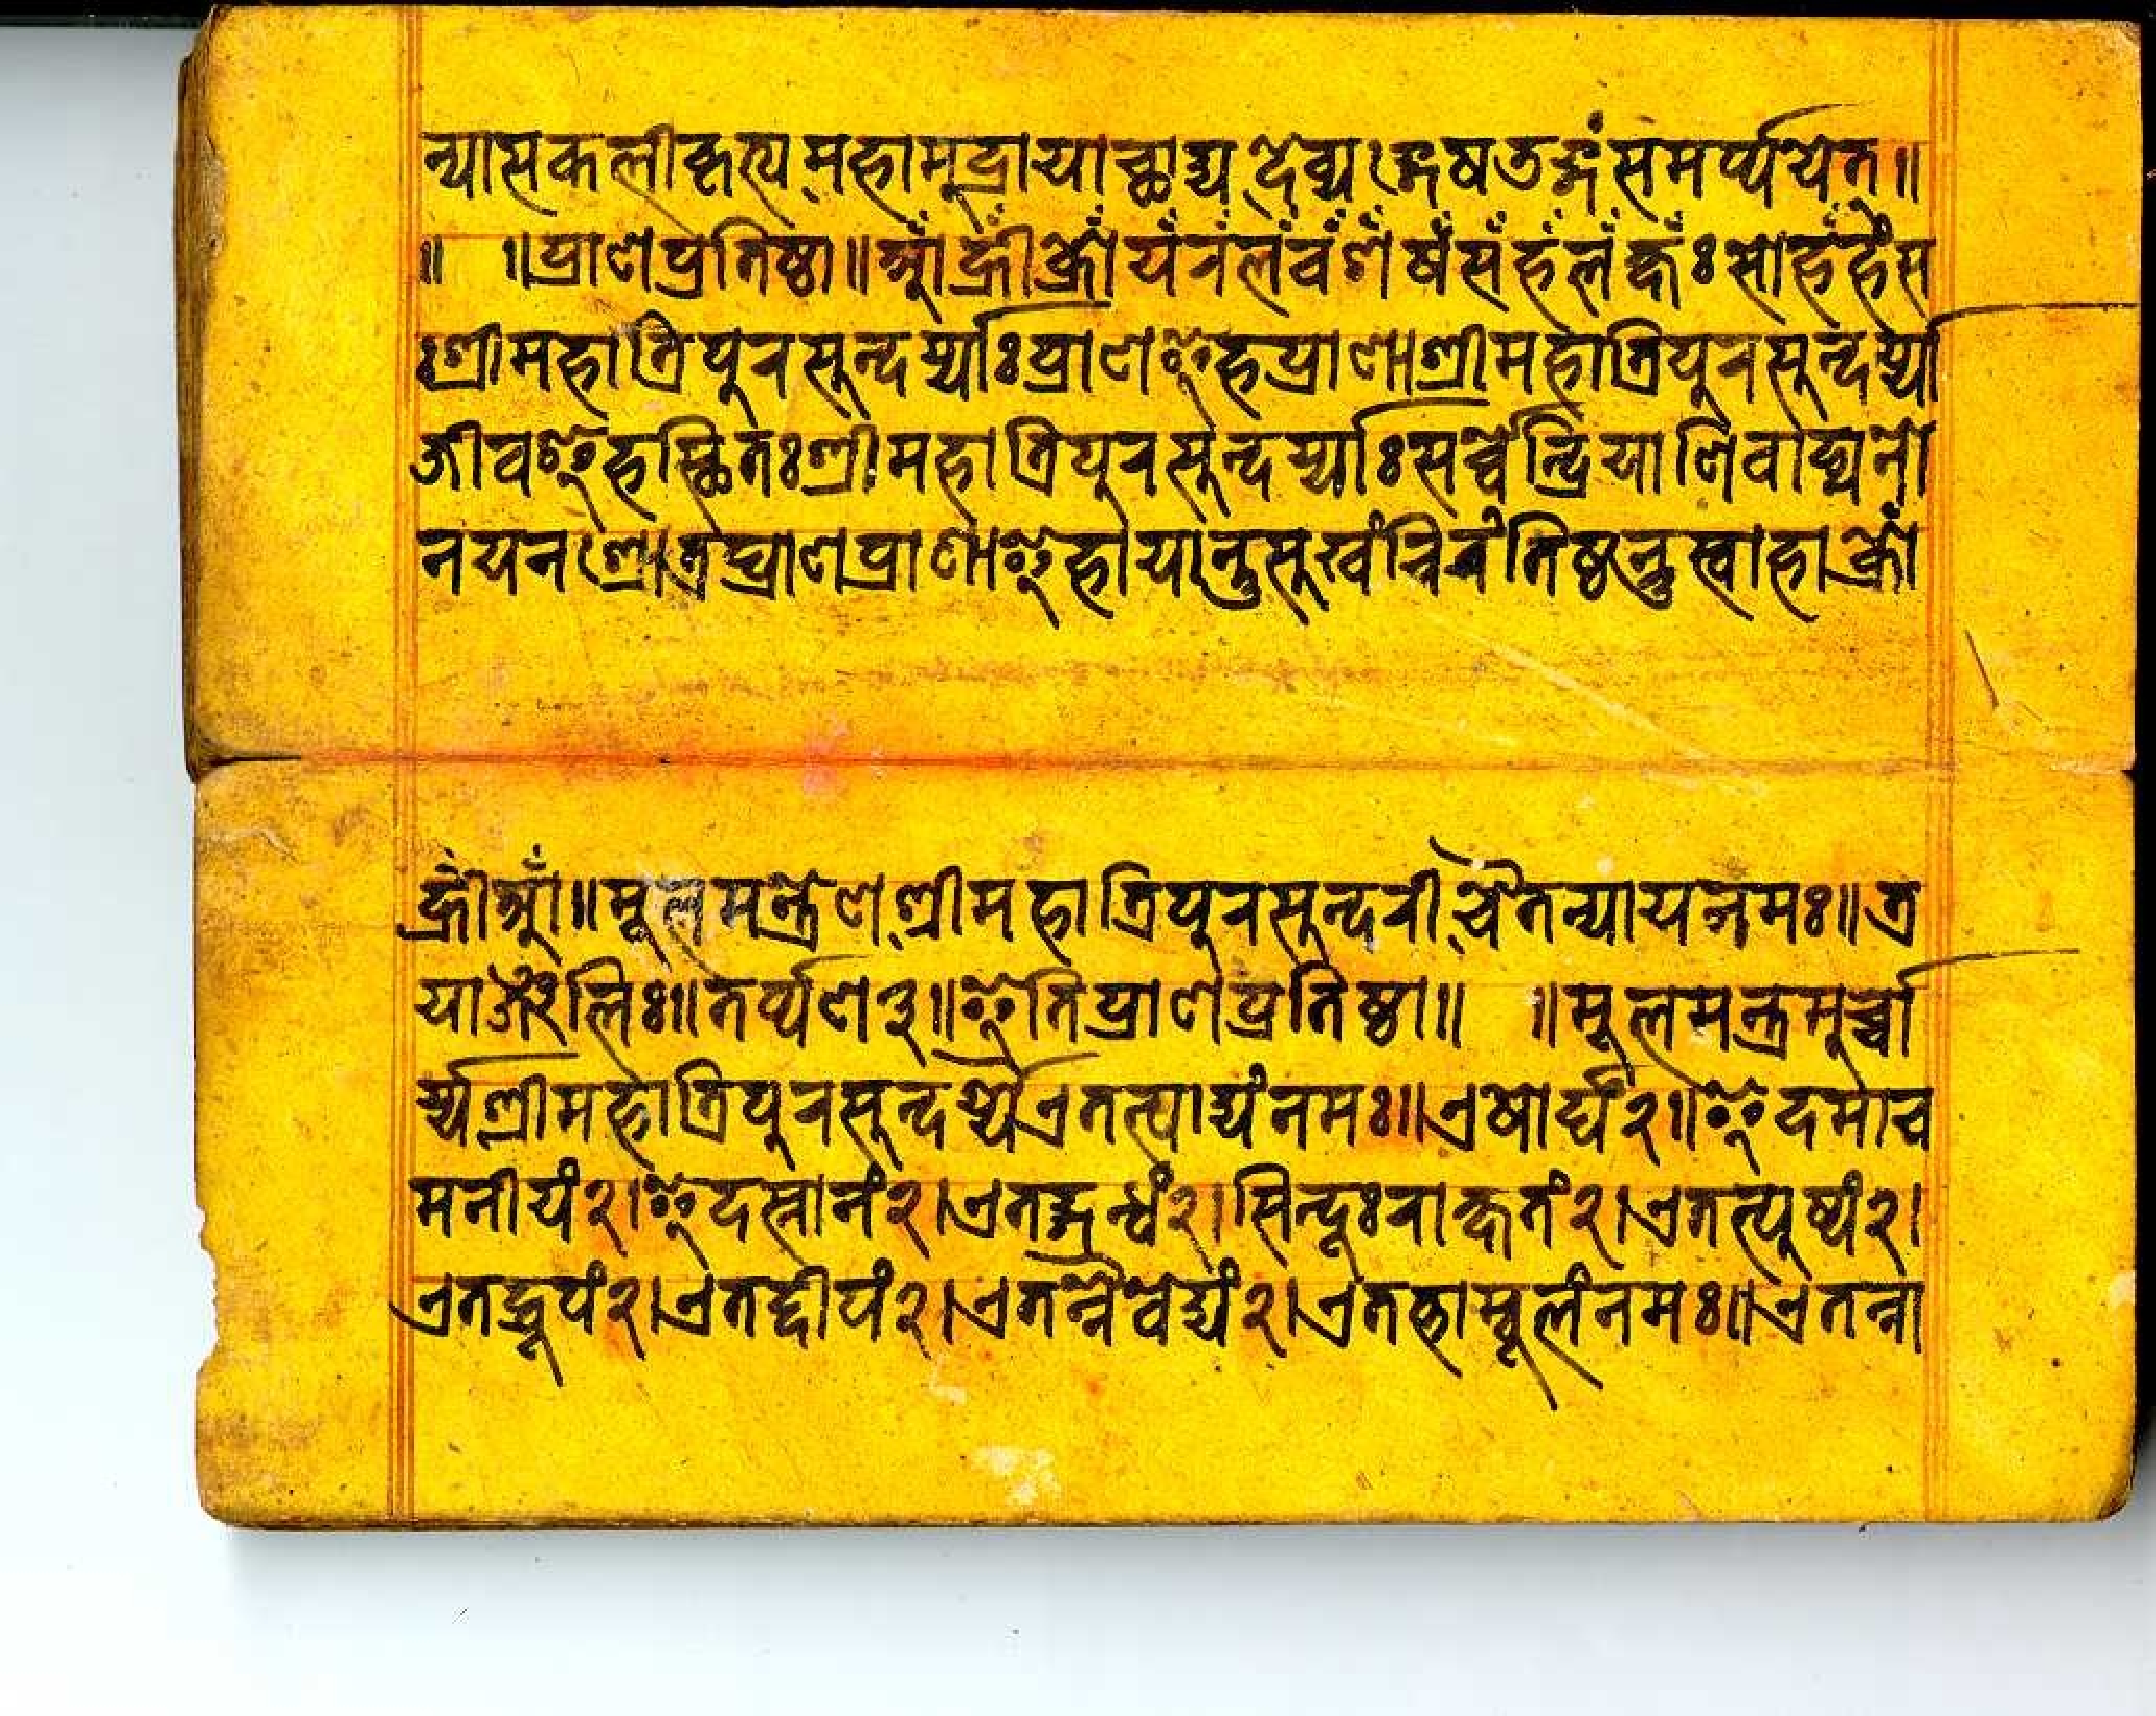 न्यासकलीकृत्य महामुद्रायाच्छाद्य देव्यङ्गेषतङ्गंसमर्प्पयेत॥
॥ ॥प्राणप्रतिष्ठा॥आँह्रीँक्रोँयँरँलँवँशँषँसँहँलँक्षँः सोहँहँस
ःश्रीमहात्रिपुरसुन्दर्य्याःप्राणइहप्राणाश्रीमहात्रिपुरसुन्दर्य्या
जीवइहस्थितःश्रीमहात्रिपुरसुन्दर्य्याःसर्व्वेन्द्रियाणिवाङ्मनो
नयनश्रोत्रघ्राणप्राणाइहायान्तुसुखंचिरंतिष्ठन्तुस्वाहाक्रोँ
ह्रीँआँ॥मूलमन्त्रेणश्रीमहात्रिपुरसुन्दरीचैतन्यायनमः॥त्र
याञ्जलिः॥तर्प्पण३॥इतिप्राणप्रतिष्ठा॥ ॥मूलमन्त्रमुर्च्चा
र्य्यश्रीमहात्रिपुरसुन्दर्य्यैएतत्पाद्यंनमः॥एषोर्घ्यं२॥इदमाच
मनीयं२।इदस्नानं२।एतद्गन्धं२।सिन्दूःराक्षतं२।एतत्पुष्पं२।
एतद्धूपं२।एतद्दीपं२।एतन्नैवेद्यं२।एतत्ताम्बूलंनमः॥एतन्ना